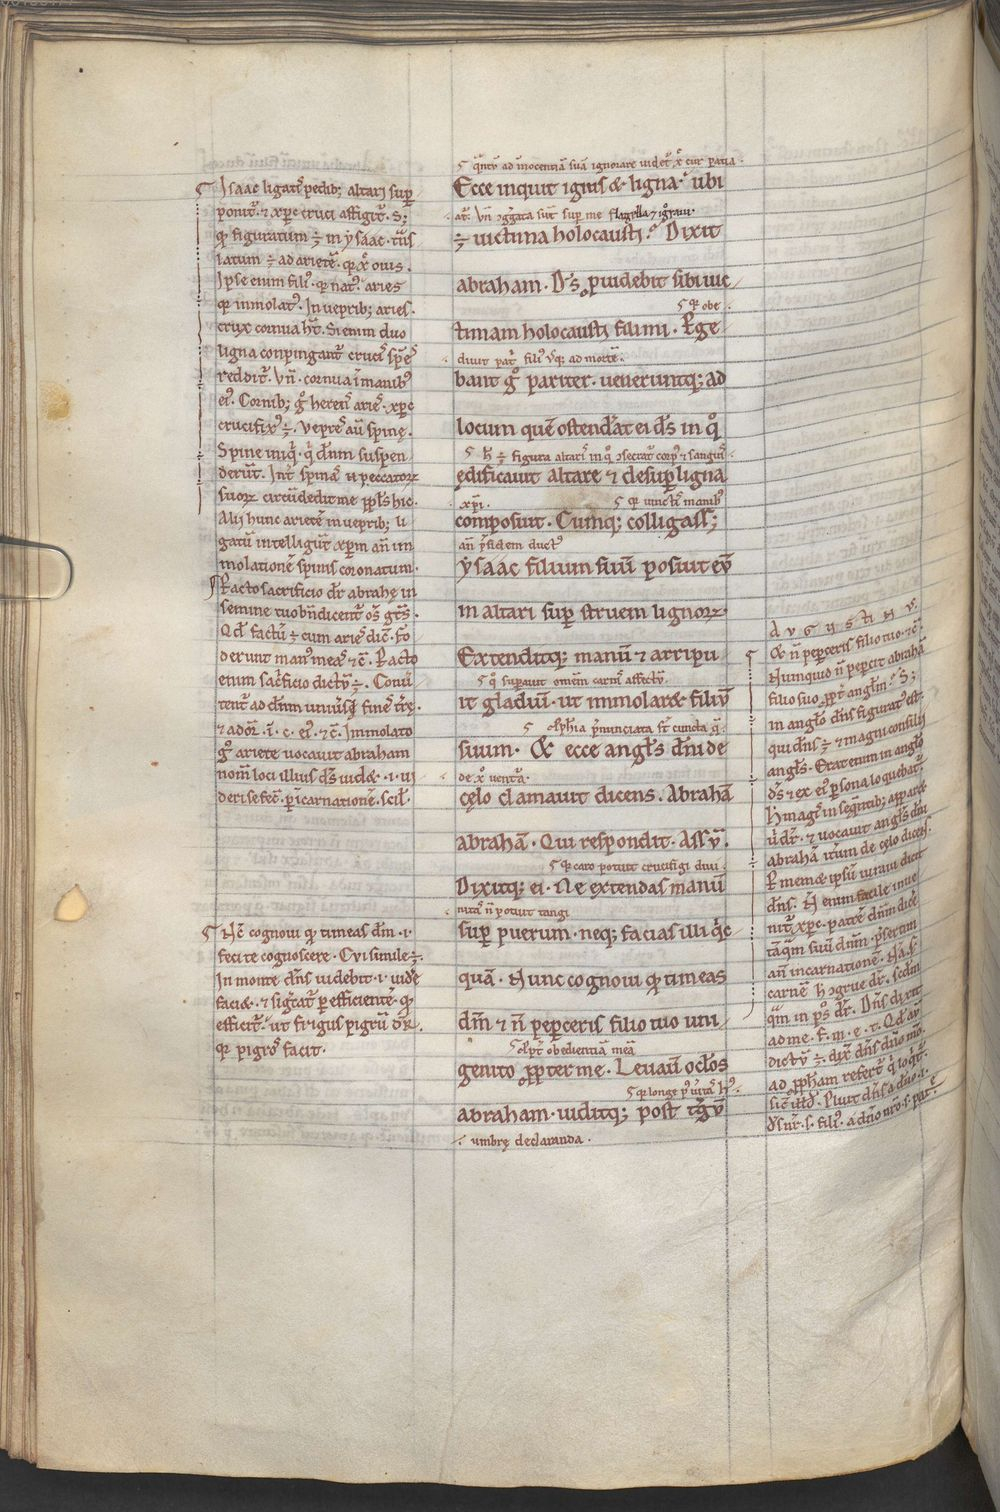 Isaac ligatꝰ pedib; altari suꝑ
ponit̃. ⁊ xp̃c cruci affigit̃. S;
qđ figuratum ÷ in ysaac. tñs
latum ÷ ad arietẽ. qꝛ x̃ ouis.
Ipse enim filiꝰ. qꝛ natꝰ. aries
qꝛ immolatꝰ. In ueprib; aries.
crux cornua hꝫ. Si enim duo
ligna conpingant̃ crucis spẽs
reddit̃. Vñ. cornua ĩ manibꝰ
eiꝰ. Cornib; g̊ herens aries. xp̃c
crucifixꝰ ÷. Vepres aũ spinę.
Spine iniq̃. q̃ dñm suspen
derũt. Int̃ spinas ⁊ peccatoꝝ
suoꝝ circũdedit me ppl̃s hic.
Alii hunc arietẽ in ueprib; li
gatũ intelligũt xp̃m añ im
molationẽ spinis coronatum.
Facto sacrificio dr̃ abrahę in
semine tuo bñdicent̃ om̃s gẽs.
Qđ factũ ÷ cum aries dic̃. fo
derunt manꝰ meas ⁊ c̃. Facto
enim sac̃ficio dictũ ÷. Conũ
tent̃ ad dñm uniũsi fines t̃rę.
⁊ ador̃. i. c. eiꝰ. ⁊ c̃. Immolato
g̊ ariete uocauit abraham
nom̃ loci illius dñs uidet. i. ui
deri se fec̃. p̱ incarnationẽ. scil̃.
Nc̃ cognoui qđ timeas dm̃. i.
feci te cognoscere. Cui simile ÷.
In monte dñs uidebit. i. uidẽ
faciet. ⁊ sig̃cat̃ p̱ efficientẽ. qđ
efficit̃. ut frigus pigrũ dr̃.
qꝛ pigros facit.
q̃ntũ ad innocentiã suã ignorare uidet̃ x̃ cur patia
Ecce inquit ignis & ligna. ubi
at̃. Vñ ɔg̃gata sũt sup me flagella ⁊ ig̃raui.
÷ uictima holocausti? Dixit
abraham. Ds̃ ꝓuidebit sibi uic
qꝛ obe
timam holocausti fili mi. Perge
diuit pat̃ filiꝰ usq; ad mortẽ.
bant g̊ pariter. ueneruntq; ad
locum quẽ ostendrat ei ds̃ in q̊
h̃ ÷ figura altaris in q̊ ɔsecrat̃ corpꝰ ⁊ sanguis
ędificauit altare ⁊ desup ligna
xp̃i.
qꝛ uinctis manibꝰ
composuit. Cumq; colligass;
añ p̃sidem ductꝰ
ysaac filium suũ posuit eũ
in altari sup struem lignoꝝ.
Extenditq; manũ ⁊ arripu
q̃ superauit omẽm carnis affectũ.
it gladiũ. ut immolaret filiũ
ꝓph̃ia p̃nunciata st̃ cuncta q̃
suum. & ecce angl̃s dñi de
de x̊ uentura.
cęlo clamauit dicens. Abrahã
abrahã. Qui respondit. Assũ.
qꝛ caro potuit crucifigi diui
Dixitq; ei. Ne extendas manũ
nitas ñ potuit tangi
sup puerum. neq; facias illi q̃c
quã. Nunc cognoui qđ timeas
dm̃ ⁊ ñ pepceris filio tuo uni
ꝓpt̃ obedientiã meã
genito ꝓpter me. Leuauit ocl̃os
qđ longe p̃ uitã hꝰ
abraham. uiditq; post t̃gũ
umbrę declaranda.
Augustinꝰ.
& ñ peperceris filio tuo. ⁊ c̃.
Nunquid ñ pepcit abrahã
filio suo ꝓpt̃ angl̃m? S;
in angl̃o dñs figuratꝰ est.
qui dñs ÷ ⁊ magni consilii
angl̃s. Erat enim in angl̃o
ds̃ ⁊ ex eiꝰ persona loquebat̃.
h̃ magis in seq̃ntib; apparet
ũ dr̃. ⁊ uocauit angl̃s dñi
abrahã itũm de cęlo dicens.
P memet ipsũ iuraui dicit
dñs. Ñ enim facile inue
nit̃ xp̃c. patrẽ dñm dicẽ
tãq̃m suũ dñm. p̃sertim
añ incarnationẽ. Na s̃
carnẽ h̃ ɔgrue dr̃. scđm
q̃m in ps̃ dr̃. Dñs dixit
ad me. f. m. e. t. Qđ aũ
dictũ ÷. dix̃ dñs dño mo.
ad ꝓph̃am refert̃ q̃ loq̃t̃.
sic̃ illđ. Pluit dñs a dño. i.
dñs. s. filiꝰ. a dño nr̃o. s. patre